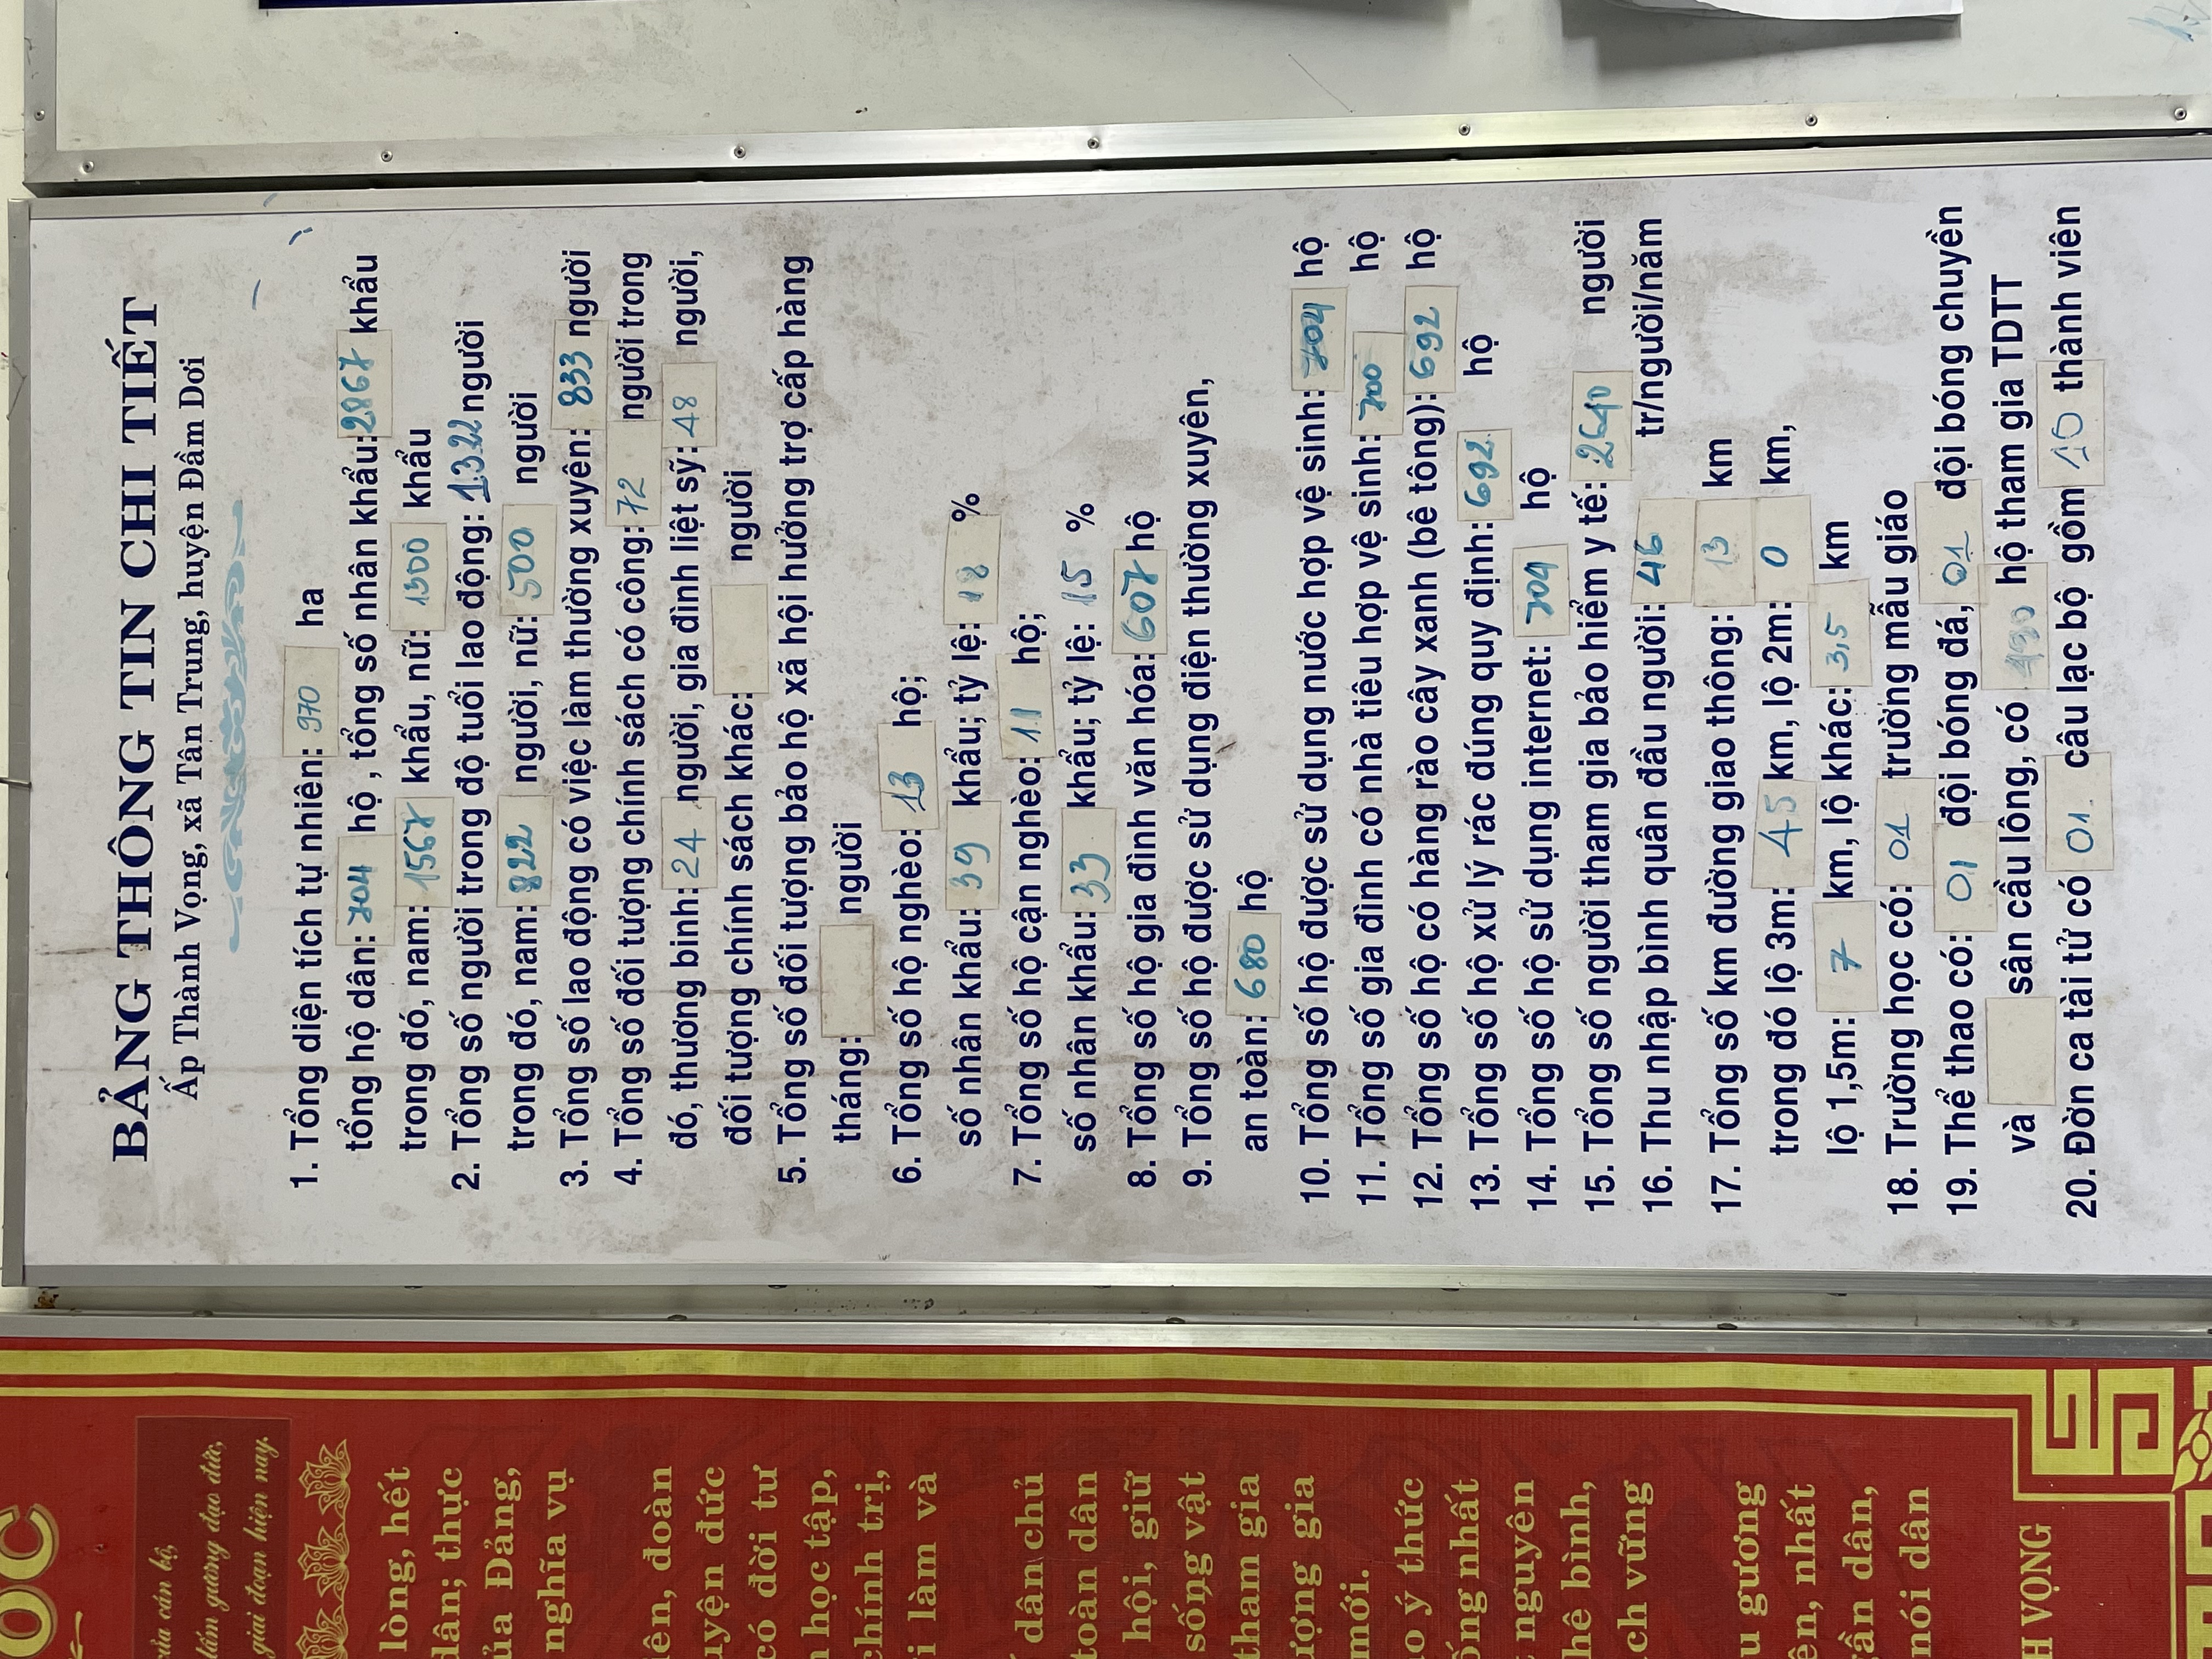 ỐC
của cán bộ,
tấm gương đạo đức,
giai đoạn hiện nay.
lòng, hết
dân; thực
của Đảng,
nghĩa vụ
đoàn
đức
có đời tư
học tập,
chính trị,
làm và
dân chủ
toàn dân
hội, giữ
sống vật
tham gia
gia
mới.
ý thức
nhất
nguyên
bình,
vững
gương
nhất
dân,
nói dân
VỌNG
BẢNG THÔNG TIN CHI TIẾT
Ấp Thành Vọng, xã Tân Trung, huyện Đầm Dơi
1. Tổng diện tích tự nhiên: 970 ha
tổng hộ dân: 704 hộ , tổng số nhân khẩu: 2867 khẩu
trong đó, nam: 1567 khẩu, nữ: 1300 khẩu
2. Tổng số người trong độ tuổi lao động: 1.322 người
trong đó, nam: 822 người, nữ: 500 người
3. Tổng số lao động có việc làm thường xuyên: 833 người
4. Tổng số đối tượng chính sách có công: 72 người trong
đó, thương binh: 24 người, gia đình liệt sỹ: 48 người,
đối tượng chính sách khác: người
5. Tổng số đối tượng bảo hộ xã hội hưởng trợ cấp hàng
tháng: người
6. Tổng số hộ nghèo: 13 hộ;
số nhân khẩu: 39 khẩu; tỷ lệ: 18 %
7. Tổng số hộ cận nghèo: 11 hộ;
số nhân khẩu: 33 khẩu; tỷ lệ: 15 %
8. Tổng số hộ gia đình văn hóa: 607 hộ
9. Tổng số hộ được sử dụng điện thường xuyên,
an toàn: 680 hộ
10. Tổng số hộ được sử dụng nước hợp vệ sinh: 704 hộ
11. Tổng số gia đình có nhà tiêu hợp vệ sinh: 700 hộ
12. Tổng số hộ có hàng rào cây xanh (bê tông): 692 hộ
13. Tổng số hộ xử lý rác đúng quy định: 692 hộ
14. Tổng số hộ sử dụng internet: 704 hộ
15. Tổng số người tham gia bảo hiểm y tế: 2640 người
16. Thu nhập bình quân đầu người: 46 tr/người/năm
17. Tổng số km đường giao thông: 13 km
trong đó lộ 3m: 45 km, lộ 2m: 0 km,
lộ 1,5m: 7 km, lộ khác: 3,5 km
18. Trường học có: 01 trường mẫu giáo
19. Thể thao có: 01 đội bóng đá, 01 đội bóng chuyền
và sân cầu lông, có hộ tham gia TDTT
20. Đờn ca tài tử có 01 câu lạc bộ gồm 10 thành viên